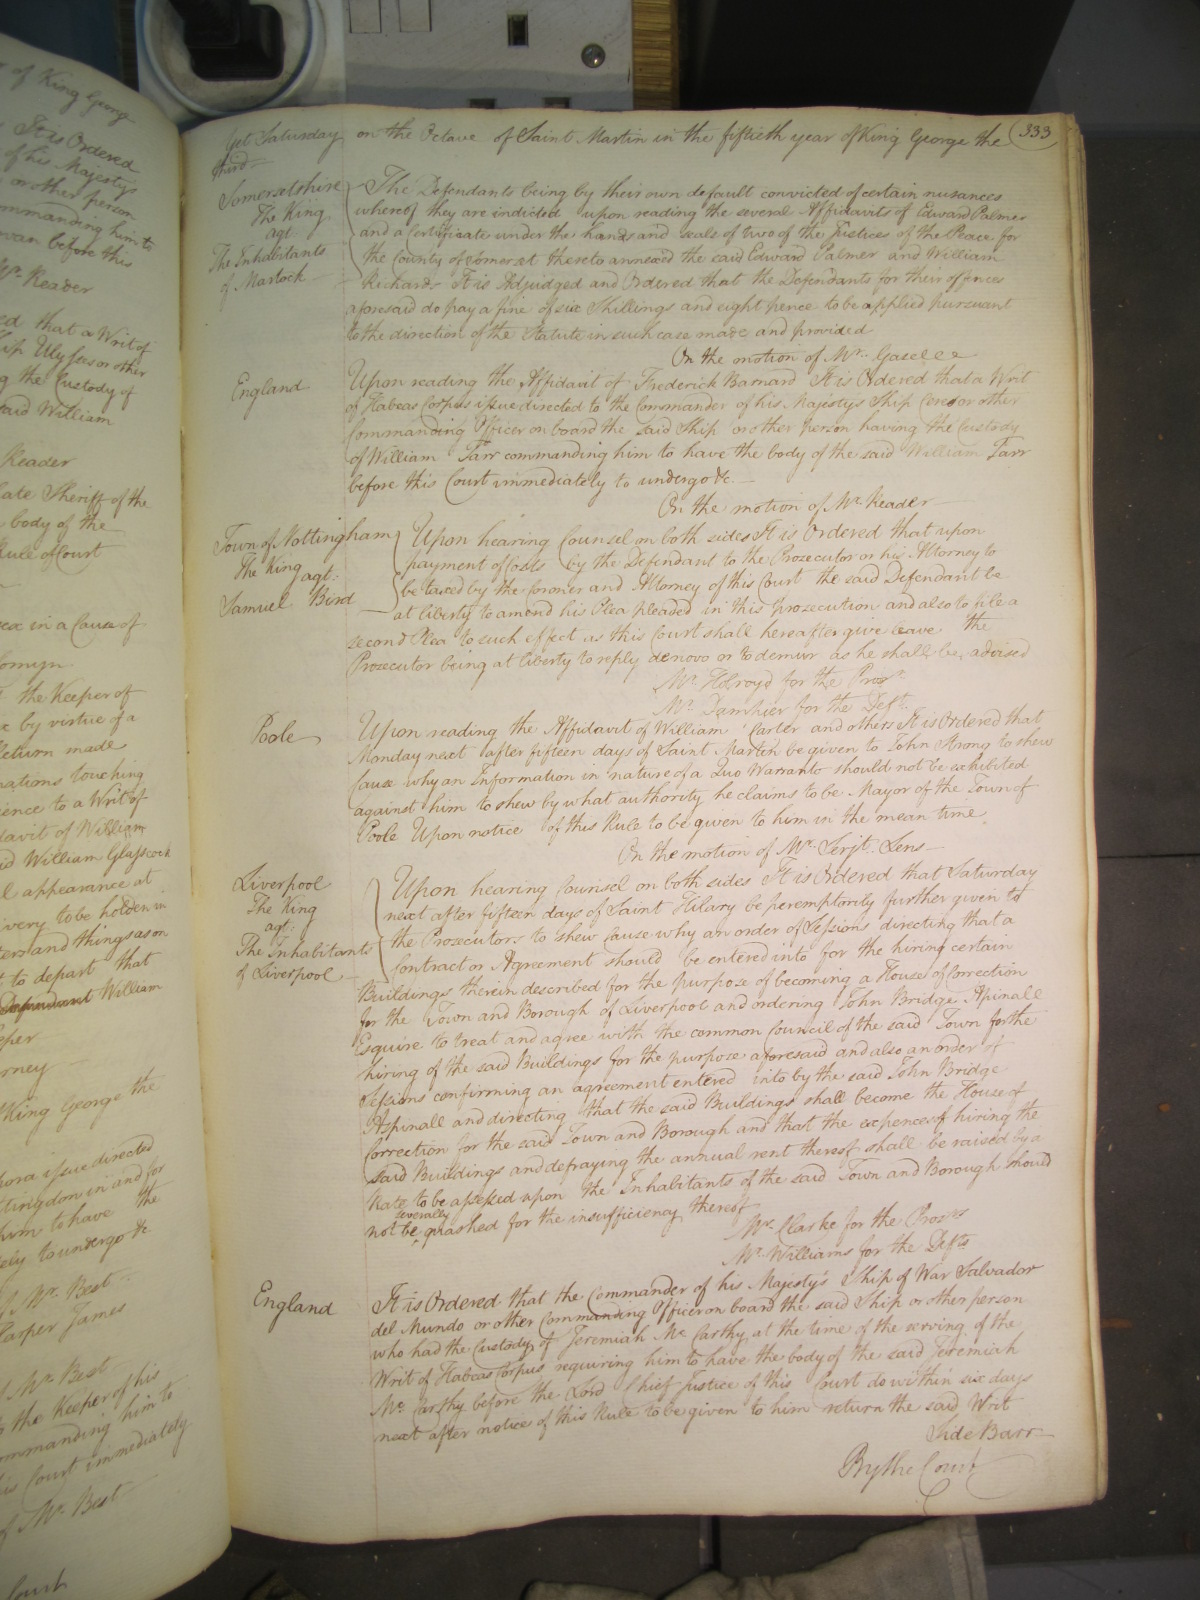 of King George
It is Ordered
of his Majestys
or other person
commanding him to
before this
Mr. Reader
ed that a Writ of
Ship Ulysses or other
g the Custody of
said William
Reader
late Sheriff of the
body of the
Rule of Court
in a Cause of
the Keeper of
by virtue of a
Return made
touching
ience to a Writ of
davit of William
William Glasscock
l appearance at
ivery to be holden in
and things as on
t to depart that
Defendant William
King George the
issue directed
tingdon in and for
him to have the
ely to undergo &c
Mr. Best
Casper James
Mr. Best
the Keeper of his
ommanding him to
his Court immediately
of Mr. Best
Court
333
Yet Saturday on the Octave of Saint Martin in the fiftieth year of King George the
third
Somersetshire
The King
agt
The Inhabitants
of Martock
The Defendants being by their own default convicted of certain nusances
whereof they are indicted upon reading the several Affidavits of Edward Palmer
and a Certificate under the hands and seals of two of the Justices of the Peace for
the County of Somerset thereto annexed the said Edward Palmer and William
Richards It is Adjudged and Ordered that the Defendants for their offences
aforesaid do pay a fine of six Shillings and eight pence to be applied pursuant
to the direction of the Statute in such case made and provided
On the motion of Mr. Gaselee
England
Upon reading the Affidavit of Frederick Barnard It is Ordered that a Writ
of Habeas Corpus issue directed to the Commander of his Majestys Ship Ceres or other
Commanding Officer on board the said Ship or other person having the Custody
of William Tarr commanding him to have the body of the said William Tarr
before this Court immediately to undergo &c.
On the motion of Mr. Reader
Town of Nottingham
The King agt.
Samuel Bird
Upon hearing Counsel on both sides It is Ordered that upon
payment of Costs by the Defendant to the Prosecutor or his Attorney to
be taxed by the Coroner and Attorney of this Court the said Defendant be
at liberty to amend his Plea pleaded in this prosecution and also to file a
second Plea to such effect as this Court shall hereafter give leave the
Prosecutor being at liberty to reply denovo or to demur as he shall be advised
Mr. Holroyd for the Pros.
Mr. Dampier for the Deft.
Poole
Upon reading the Affidavit of William Carter and others It is Ordered that
Monday next after fifteen days of Saint Martin be given to John Strong to shew
Cause why an Information in nature of a Quo Warranto should not be exhibited
against him to shew by what authority he claims to be Mayor of the Town of
Poole Upon notice of this Rule to be given to him in the mean time
On the motion of Mr. Serjt. Lens
Liverpool
The King
agt.
The Inhabitants
of Liverpool
Upon hearing Counsel on both sides It is Ordered that Saturday
next after fifteen days of Saint Hilary be peremptorily further given to
the Prosecutors to shew Cause why an order of Sessions directing that a
Contract or Agreement should be entered into for the hiring certain
Buildings therein described for the purpose of becoming a House of Correction
for the Town and Borough of Liverpool and ordering John Bridge Aspinall
Esquire to treat and agree with the common Council of the said Town for the
hiring of the said Buildings for the purpose aforesaid and also an order of
Sessions confirming an agreement entered into by the said John Bridge
Aspinall and directing that the said Buildings shall become the House of
Correction for the said Town and Borough and that the expences of hiring the
said Buildings and defraying the annual rent thereof shall be raised by a
Rate to be assessed upon the Inhabitants of the said Town and Borough should
not be severally quashed for the insufficiency thereof
Mr. Clarke for the Prosrs
Mr. Williams for the Defts
England
It is Ordered that the Commander of his Majesty's Ship of War Salvador
del Mundo or other Commanding Officer on board the said Ship or other person
who had the Custody of Jeremiah Mc Carthy at the time of the serving of the
Writ of Habeas Corpus requiring him to have the body of the said Jeremiah
Mc Carthy before the Lord Chief Justice of this Court do within six days
next after notice of this Rule to be given to him return the said Writ
Side Barr
By the Court